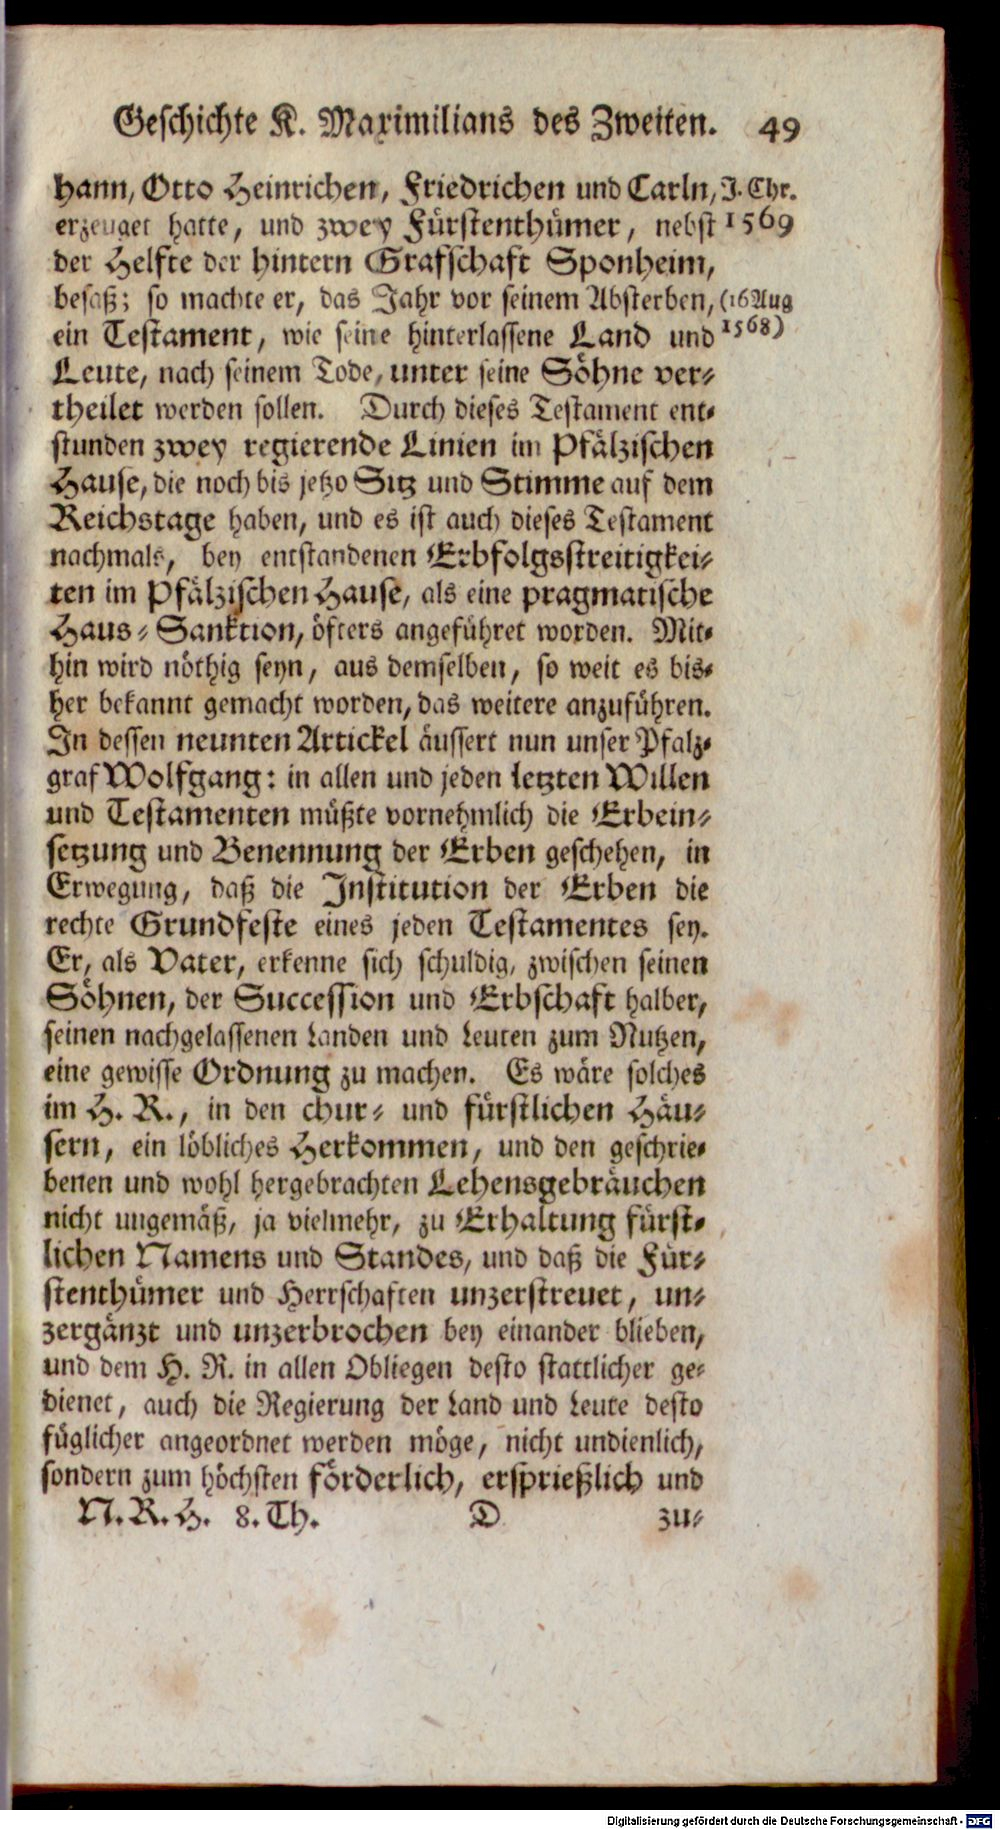 Geschichte K. Maximilians des Zweiten. 49
hann, Otto Heinrichen, Friedrichen und Carln, J. Chr.
erzeuget hatte, und zwey Fürstenthümer, nebst 1569
der Helfte der hintern Grafschaft Sponheim,
besaß; so machte er, das Jahr vor seinem Absterben, (16 Aug
ein Testament, wie seine hinterlassene Land und 1568)
Leute, nach seinem Tode, unter seine Söhne ver-
theilet werden sollen. Durch dieses Testament ent-
stunden zwey regierende Linien im Pfälzischen
Hause, die noch bis jetzo Sitz und Stimme auf dem
Reichstage haben, und es ist auch dieses Testament
nachmals, bey entstandenen Erbfolgsstreitigkei-
ten im Pfälzischen Hause, als eine pragmatische
Haus-Sanktion, öfters angeführet worden. Mit-
hin wird nöthig seyn, aus demselben, so weit es bis-
her bekannt gemacht worden, das weitere anzuführen.
In dessen neunten Artickel äussert nun unser Pfalz-
graf Wolfgang: in allen und jeden letzten Willen
und Testamenten müßte vornehmlich die Erbein-
setzung und Benennung der Erben geschehen, in
Erwegung, daß die Institution der Erben die
rechte Grundfeste eines jeden Testamentes sey.
Er, als Vater, erkenne sich schuldig, zwischen seinen
Söhnen, der Succession und Erbschaft halber,
seinen nachgelassenen Landen und Leuten zum Nutzen,
eine gewisse Ordnung zu machen. Es wäre solches
im H. R., in den chur- und fürstlichen Häu-
sern, ein löbliches Herkommen, und den geschrie-
benen und wohl hergebrachten Lehensgebräuchen
nicht ungemäß, ja vielmehr, zu Erhaltung fürst-
lichen Namens und Standes, und daß die Für-
stenthümer und Herrschaften unzerstreuet, un-
zergänzt und unzerbrochen bey einander blieben,
und dem H. R. in allen Obliegen desto stattlicher ge-
dienet, auch die Regierung der Land und Leute desto
füglicher angeordnet werden möge, nicht undienlich,
sondern zum höchsten förderlich, ersprießlich und
N. R. H. 8. Th. D zu-
Digitalisierung gefördert durch die Deutsche Forschungsgemeinschaft - DFG